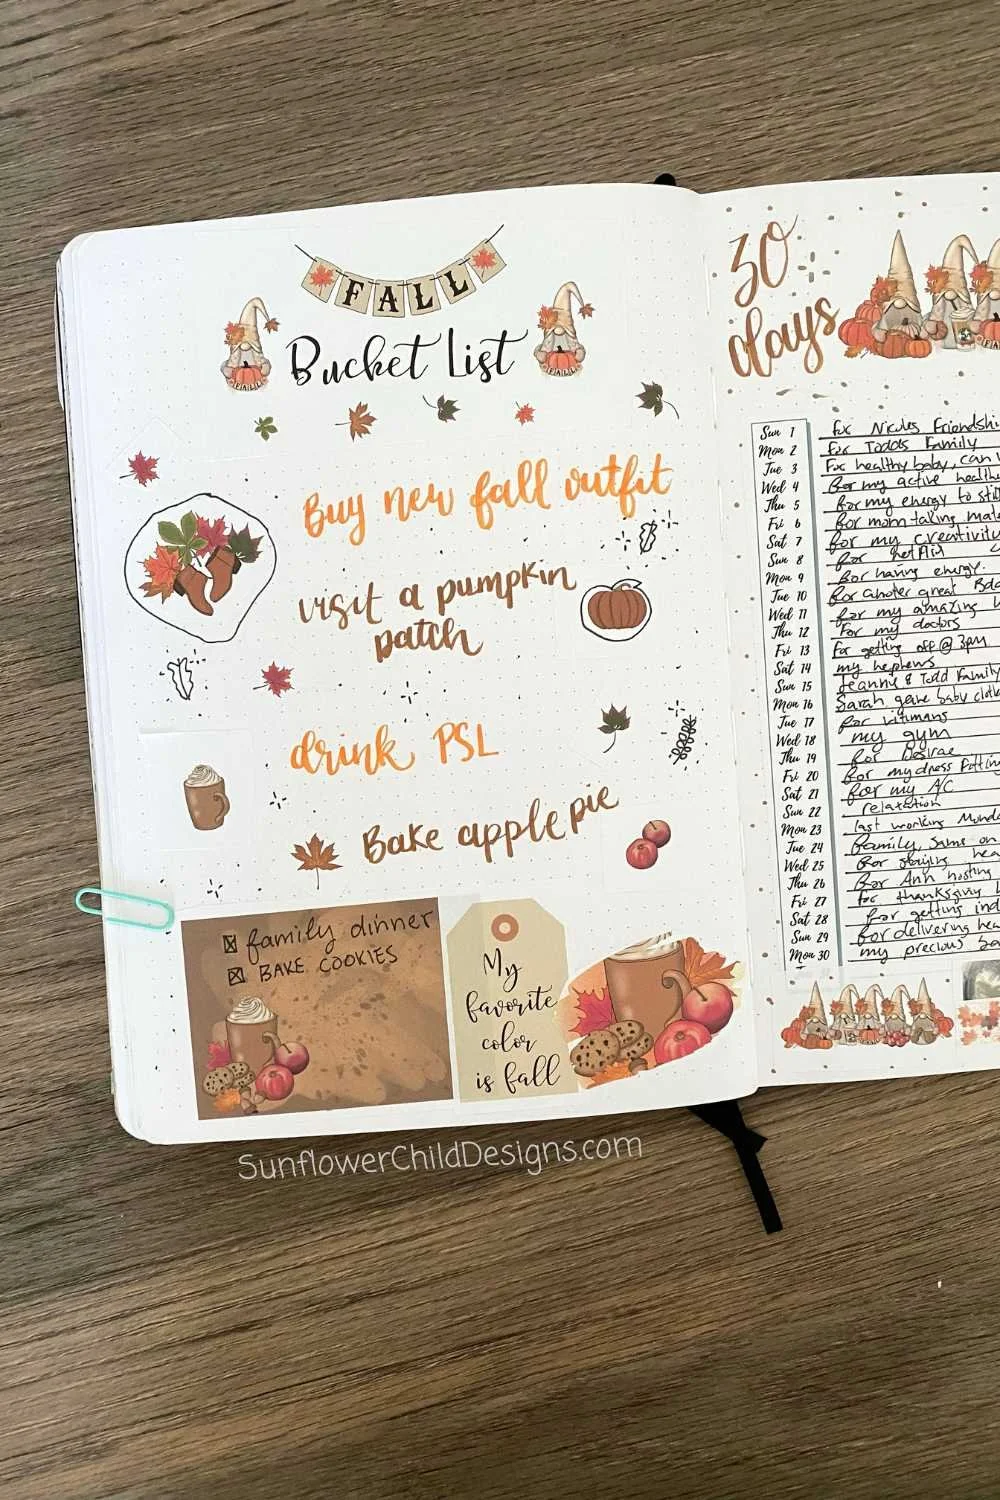 FALL
Bucket List
FALL
FALL
Buy new fall outfit
visit a pumpkin
patch
drink PSL
Bake apple pie
family dinner
BAKE COOKIES
My
favorite
color
is fall
SunflowerChildDesigns.com
30
days
FALL
Sun 1 for Nicoles Friendshi
Mon 2 For Todds Family
Tue 3 For healthy baby, can
Wed 4 for my active healthy
Thu 5 for my energy to still
Fri 6 for mom taking
Sat 7 for my creativity
Sun 8 for
Mon 9 for having energy.
Tue 10 for great
Wed 11 for my amazing
Thu 12 For my doctors
Fri 13 for getting off @ 3pm
Sat 14 my nephews
Sun 15 Jeanne & Todd Family
Mon 16 Sarah gave baby
Tue 17 for vitimans
Wed 18 my gym
Thu 19 for Desirae
Fri 20 for my dress
Sat 21 for my A/C
Sun 22 relaxation
Mon 23 last working Monda
Tue 24 family, on
Wed 25 for
Thu 26 for Ann hosting
Fri 27 for thanksgiving
Sat 28 for getting
Sun 29 for delivering
Mon 30 my precious